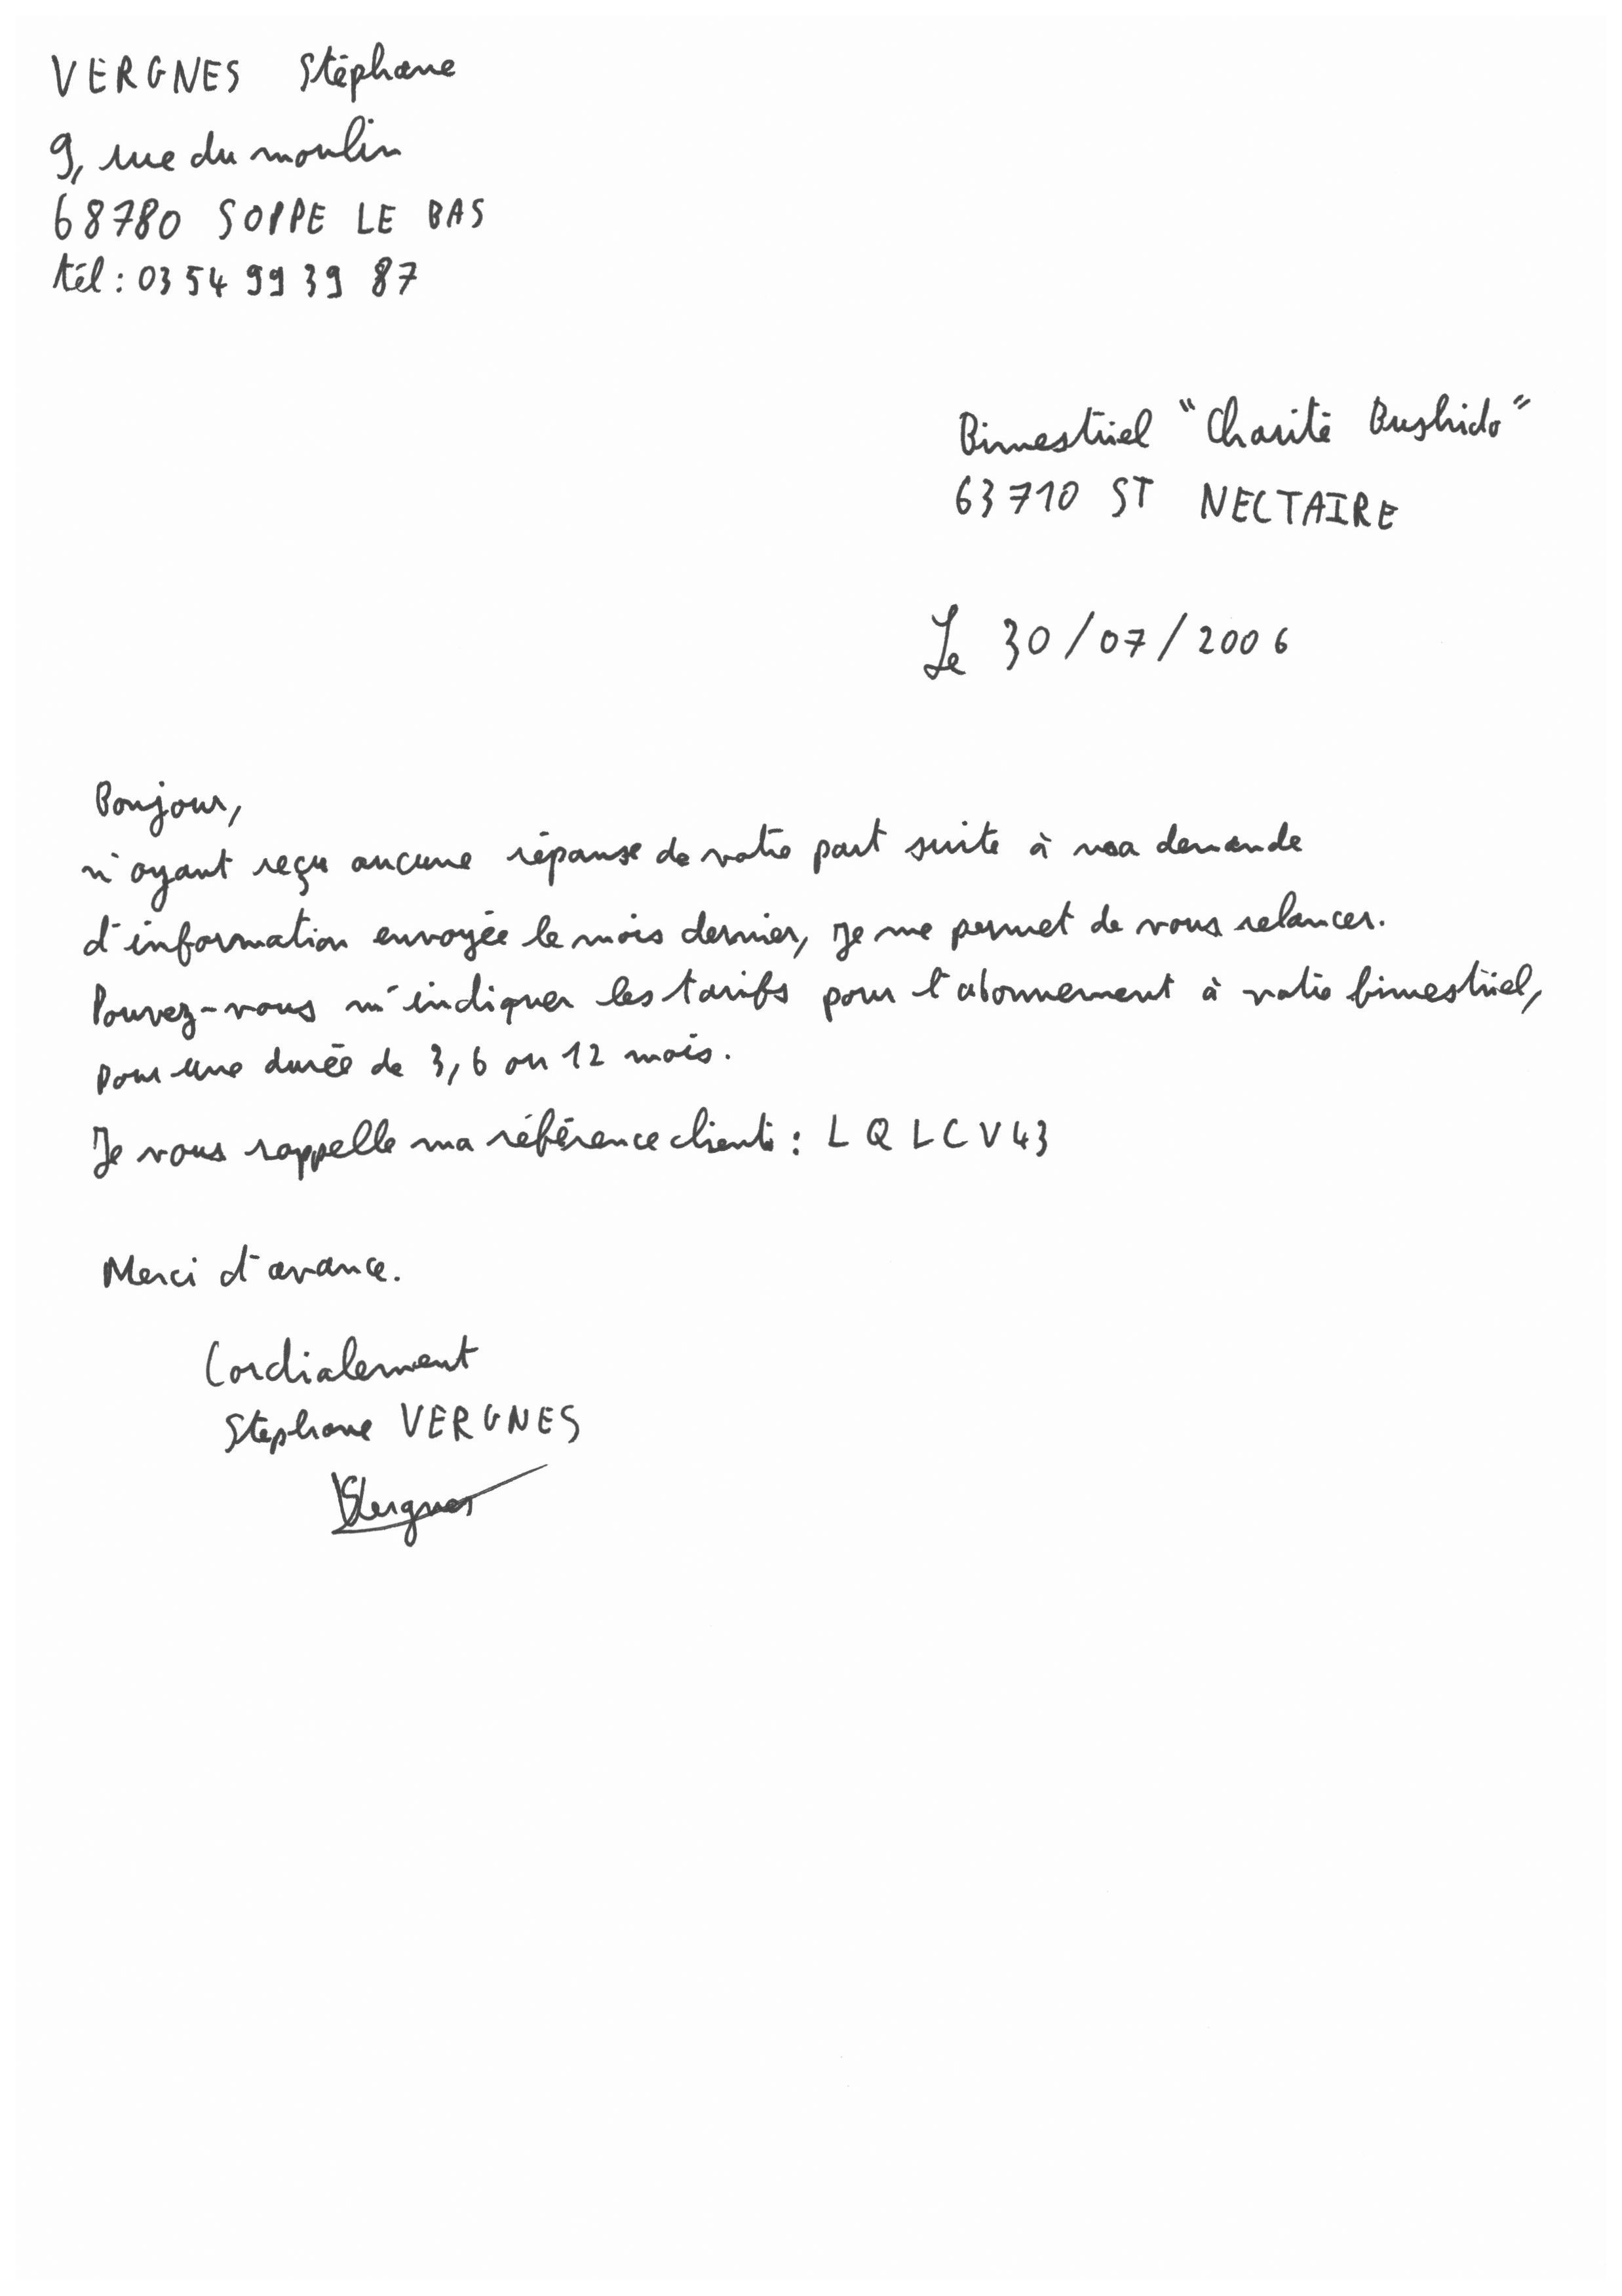 VERGNES Stéphane
9, rue du moulin
68780 SOPPE LE BAS
tél : 03 54 99 39 87
Bimestriel "Charité Bushido"
63710 ST NECTAIRE
Le 30/07/2006
Bonjour,
n'ayant reçu aucune réponse de votre part suite à ma demande
d'information envoyée le mois dernier, je me permet de vous relancer.
Pouvez-vous m'indiquer les tarifs pour l'abonnement à votre bimestriel,
pour une durée de 3, 6 ou 12 mois.
Je vous rappelle ma référence client : LQLCV43
Merci d'avance.
Cordialement
Stéphane VERGNES
SVergnes